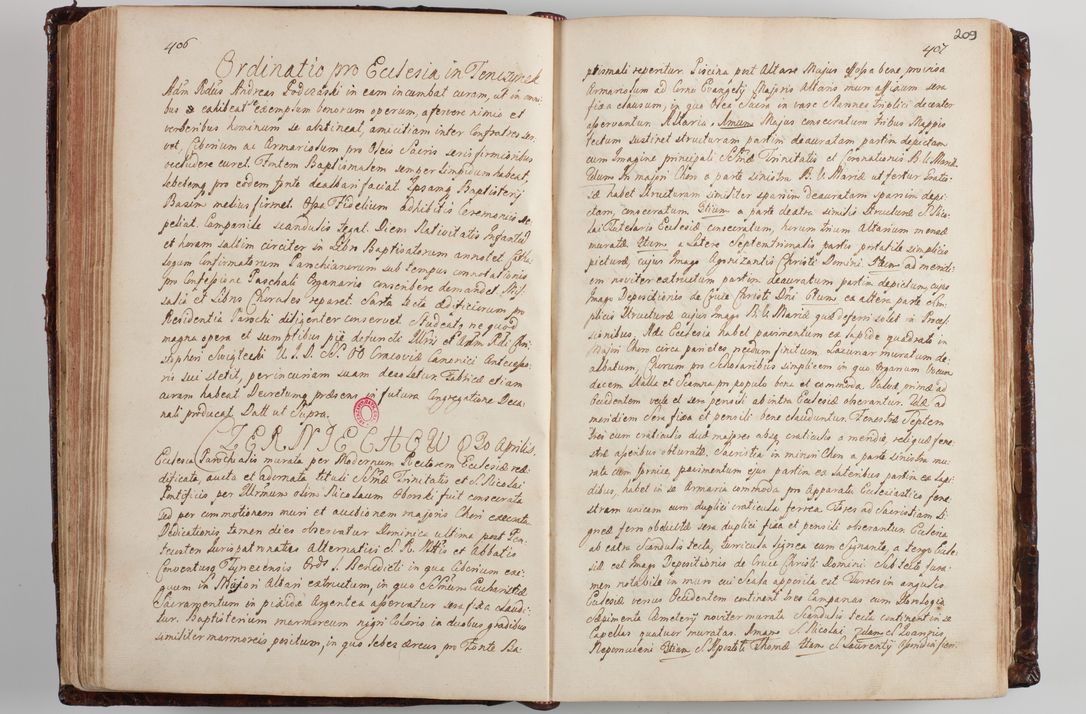 406
Ordinatio pro Ecclesia in Tenczynek
Adm Rdus AndreasPrdzarski in eam incumbat curam, ut in omni-
bus exhibeat exemplum bonorum operum, a fervore nimio et
verberibus hominum se abstineat, amicitiam inter Confratres ser-
vet, Ciborium ac Armariolum pro Oleis Sacris seris firmioribus
recludere curet. Fontem Baptismalem semper limpidum habeat,
lebetem pro eodem fonte dealbari faciat Ipsamq Baptisterij
Basim melius firmet. Ossa Fidelium adhibitis Ceremoniis se-
peliat. Campanile scandulis tegat. Diem Nativitatis Infantis
et horam saltim circiter in Libro Baptisatorum annotet, Catha-
logum Confirmatorum Parochianorum sub tempus connotationis
pro Confessione Paschali Organario conscribere demandet. Mis-
salia et Libros Chorales reparet Sarta tecta ædificiorum pro
Residentia Parochi diligenter conservet. Studeatq ne quod
magna opera et sumptibus piè defuncti Illris et Adm Rdi Chri-
stophori Swięcicki U. J. D. S. Crasoviæ Canonici Antecesso-
ris sui stetit, per incuriam suam desoletur. Fabricæ etiam
curam habeat Decretumq præsens in futura Congregatione Deca-
nali producat. Datt ut Supra.
CZERNIECHOW 20 Aprilis
Ecclesia Parochialis murata per Modernum Rectorem Ecclesiæ reæ-
dificata, aucta et adornata tituli SSmæ Trinitatis et S. Nicolai
Pontificis per Illrmum olim Nicolaum Oborski fuit consecrata
sed per commotionem muri et auctionem majoris Chori execrata
Dedicationis tamen dies observatur Dominica ultima post Pen-
tecosten Jurispatrnatus alternativi S. R. Mttis et Abbatis
Conventus Tynecensis Ords S. Benedicti in qua Ciborium exi-
guum in Majori Altari extructum, in quo SSmum Eucharistiæ
Sacramentum in pixide Argentea asservatur sera fixa claudi-
tur. Baptisterium marmoreum nigri Coloris in duobus gradibus
similiter marmoreis positum, in quo lebes æreus pro Fonte Ba-
209
407
ptismali reperitur. Piscina post Altare Majus effossa bene, provisa
Armariolum ad Cornu Evangelij Majoris Altaris muro affixum sera
fixa clausum, in quo Olea Sacra in vase stanneo triplici decenter
asservantur. Altaria. Imum Majus consecratum tribus Mappis
tectum sustinet structuram partim deauratam partim depictam
cum Imagine principali SSmæ Trinitatis et Coronationis B. V. Mariæ
2dum In majori Choro a parte sinistra B. V. Mariæ ut fertur Gratio-
sæ habet structuram similiter sparsim deauratam sparsim depi-
ctam, consecratum 3tium a parte dextra similis structuræ S. Nico-
lai Tutelaris Ecclesiæ consecratum, horum trium Altarium mensæ
muratæ 4tum a Latere Septentrionalis partis portatile simplicis
picturæ, cujus Imago Agonizantis Christi Domini 5tum ad meridi-
em noviter extructum partim deauratum partim depictum cujus
Imago Depositionis de Cruce Christi Dni 6tum ex altera parte sim-
plicis Structuræ cujus Imago B. V. Mariæ quæ deferri solet in Proces-
sionibus. Ædes Ecclesia habet pavimentum ex lapide quadrato in
Majori Choro circa parietes necdum finitum. Lacunar muratum de-
albatum, Chorum pro Scholaribus simplicem in quo Organum Vocum
decem Stalla et Scamna pro populo bona et commoda. Valvæ primæ ad
Occidentem vecte et sera pensili ab intra Ecclesiæ obserantur. 2dæ ad
meridiem Sera fixa et pensili bene clauduntur. Fenestræ Septem
tres cum craticulis duæ majores absq craticulis a meridie, reliquæ fene-
stræ asseribus obturatæ. Sacristia in minori Choro a parte sinistra mu-
rata cum fornice, pavimentum ejus partim ex lateribus partim ex lapi-
dibus, habet in se Armaria commoda pro Apparatu Ecclesiastico fene-
stram unicam cum duplici craticula ferrea. Fores ad Sacristiam li-
gneæ ferro obductæ sera duplici fixa et pensili obserantur. Ecclesia
ab extra Scandulis tecta, turricula lignea cum Signante, a tergo Eccle-
siæ est Imago Depositionis de Cruce Christi Domini sub tecto fora-
men notabile in muro cui Scala apposita est. Turris in angulis
Ecclesiæ versus Occidentem continet tres Campanas cum Horologio
Sæpimenta Cæmeterij noviter murata Scandulis tecta continent in se
Capellas quatuor muratas. Imam S. Nicolai, 2dam S. Joannis
Nepomuceni 3tiam S. Apostoli Thomæ 4tam S. Laurentij